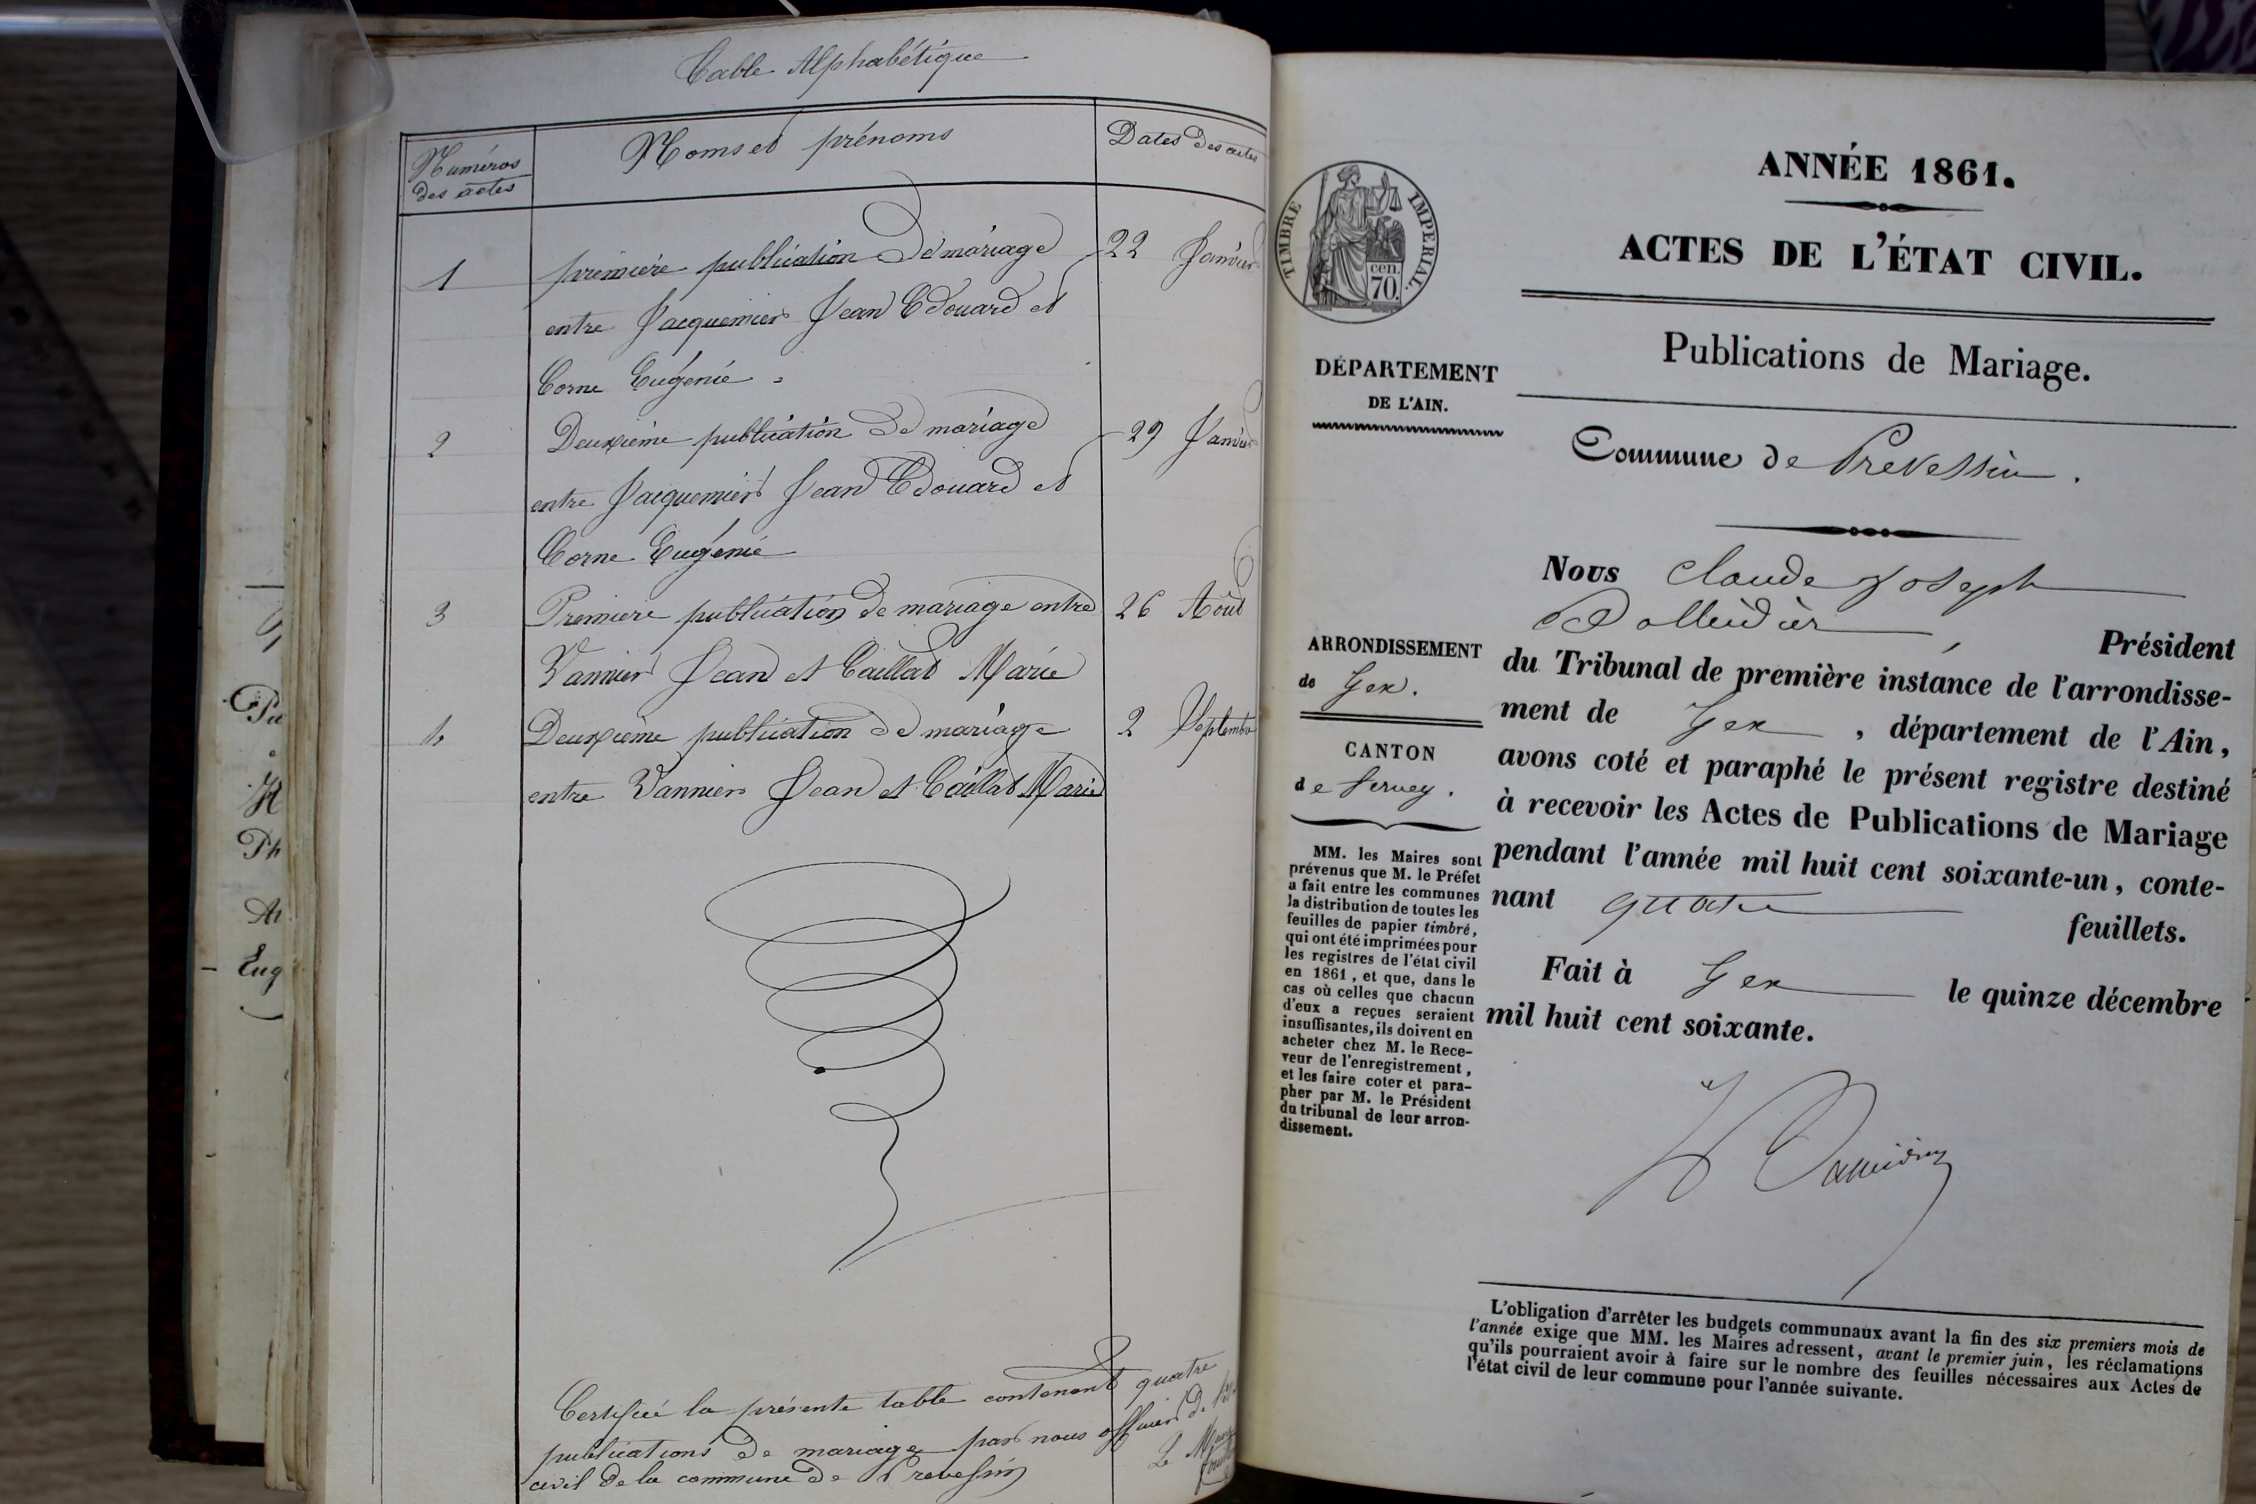 Table Alphabétique
Numéros
des actes
Noms et prénoms
Dates des actes
1 première publication de mariage 22 Janvier
entre Jacquemier Jean Edouard et
Corne Eugénie
2 Deuxième publication de mariage 29 Janvier
entre Jacquemier Jean Edouard et
Corne Eugénie
3 Première publication de mariage entre 26 Août
Vannier Jean et Caillat Marie
4 Deuxième publication de mariage 2 Septembre
entre Vannier Jean et Caillat Marie
Certifiée la présente table contenant quatre
publications de mariage par nous officier de
civil de la commune de Prevessin
Le Maire
Pu
Ph
Eug
ANNÉE 1861.
ACTES DE L'ÉTAT CIVIL.
TIMBRE IMPERIAL.
cen.
70.
Publications de Mariage.
DÉPARTEMENT
DE L'AIN.
Commune de Prevessin.
Nous Claude Joseph
Président
ARRONDISSEMENT
de Gex.
CANTON
de Ferney.
du Tribunal de première instance de l'arrondisse-
ment de Gex, département de l'Ain,
avons coté et paraphé le présent registre destiné
à recevoir les Actes de Publications de Mariage
pendant l'année mil huit cent soixante-un, conte-
nant quatre feuillets.
Fait à Gex le quinze décembre
mil huit cent soixante.
MM. les Maires sont
prévenus que M. le Préfet
a fait entre les communes
la distribution de toutes les
feuilles de papier timbré,
qui ont été imprimées pour
les registres de l'état civil
en 1861, et que, dans le
cas où celles que chacun
d'eux a reçues seraient
insuffisantes, ils doivent en
acheter chez M. le Rece-
veur de l'enregistrement,
et les faire coter et para-
pher par M. le Président
du tribunal de leur arron-
dissement.
L'obligation d'arrêter les budgets communaux avant la fin des six premiers mois de
l'année exige que MM. les Maires adressent, avant le premier juin, les réclamations
qu'ils pourraient avoir à faire sur le nombre des feuilles nécessaires aux Actes de
l'état civil de leur commune pour l'année suivante.